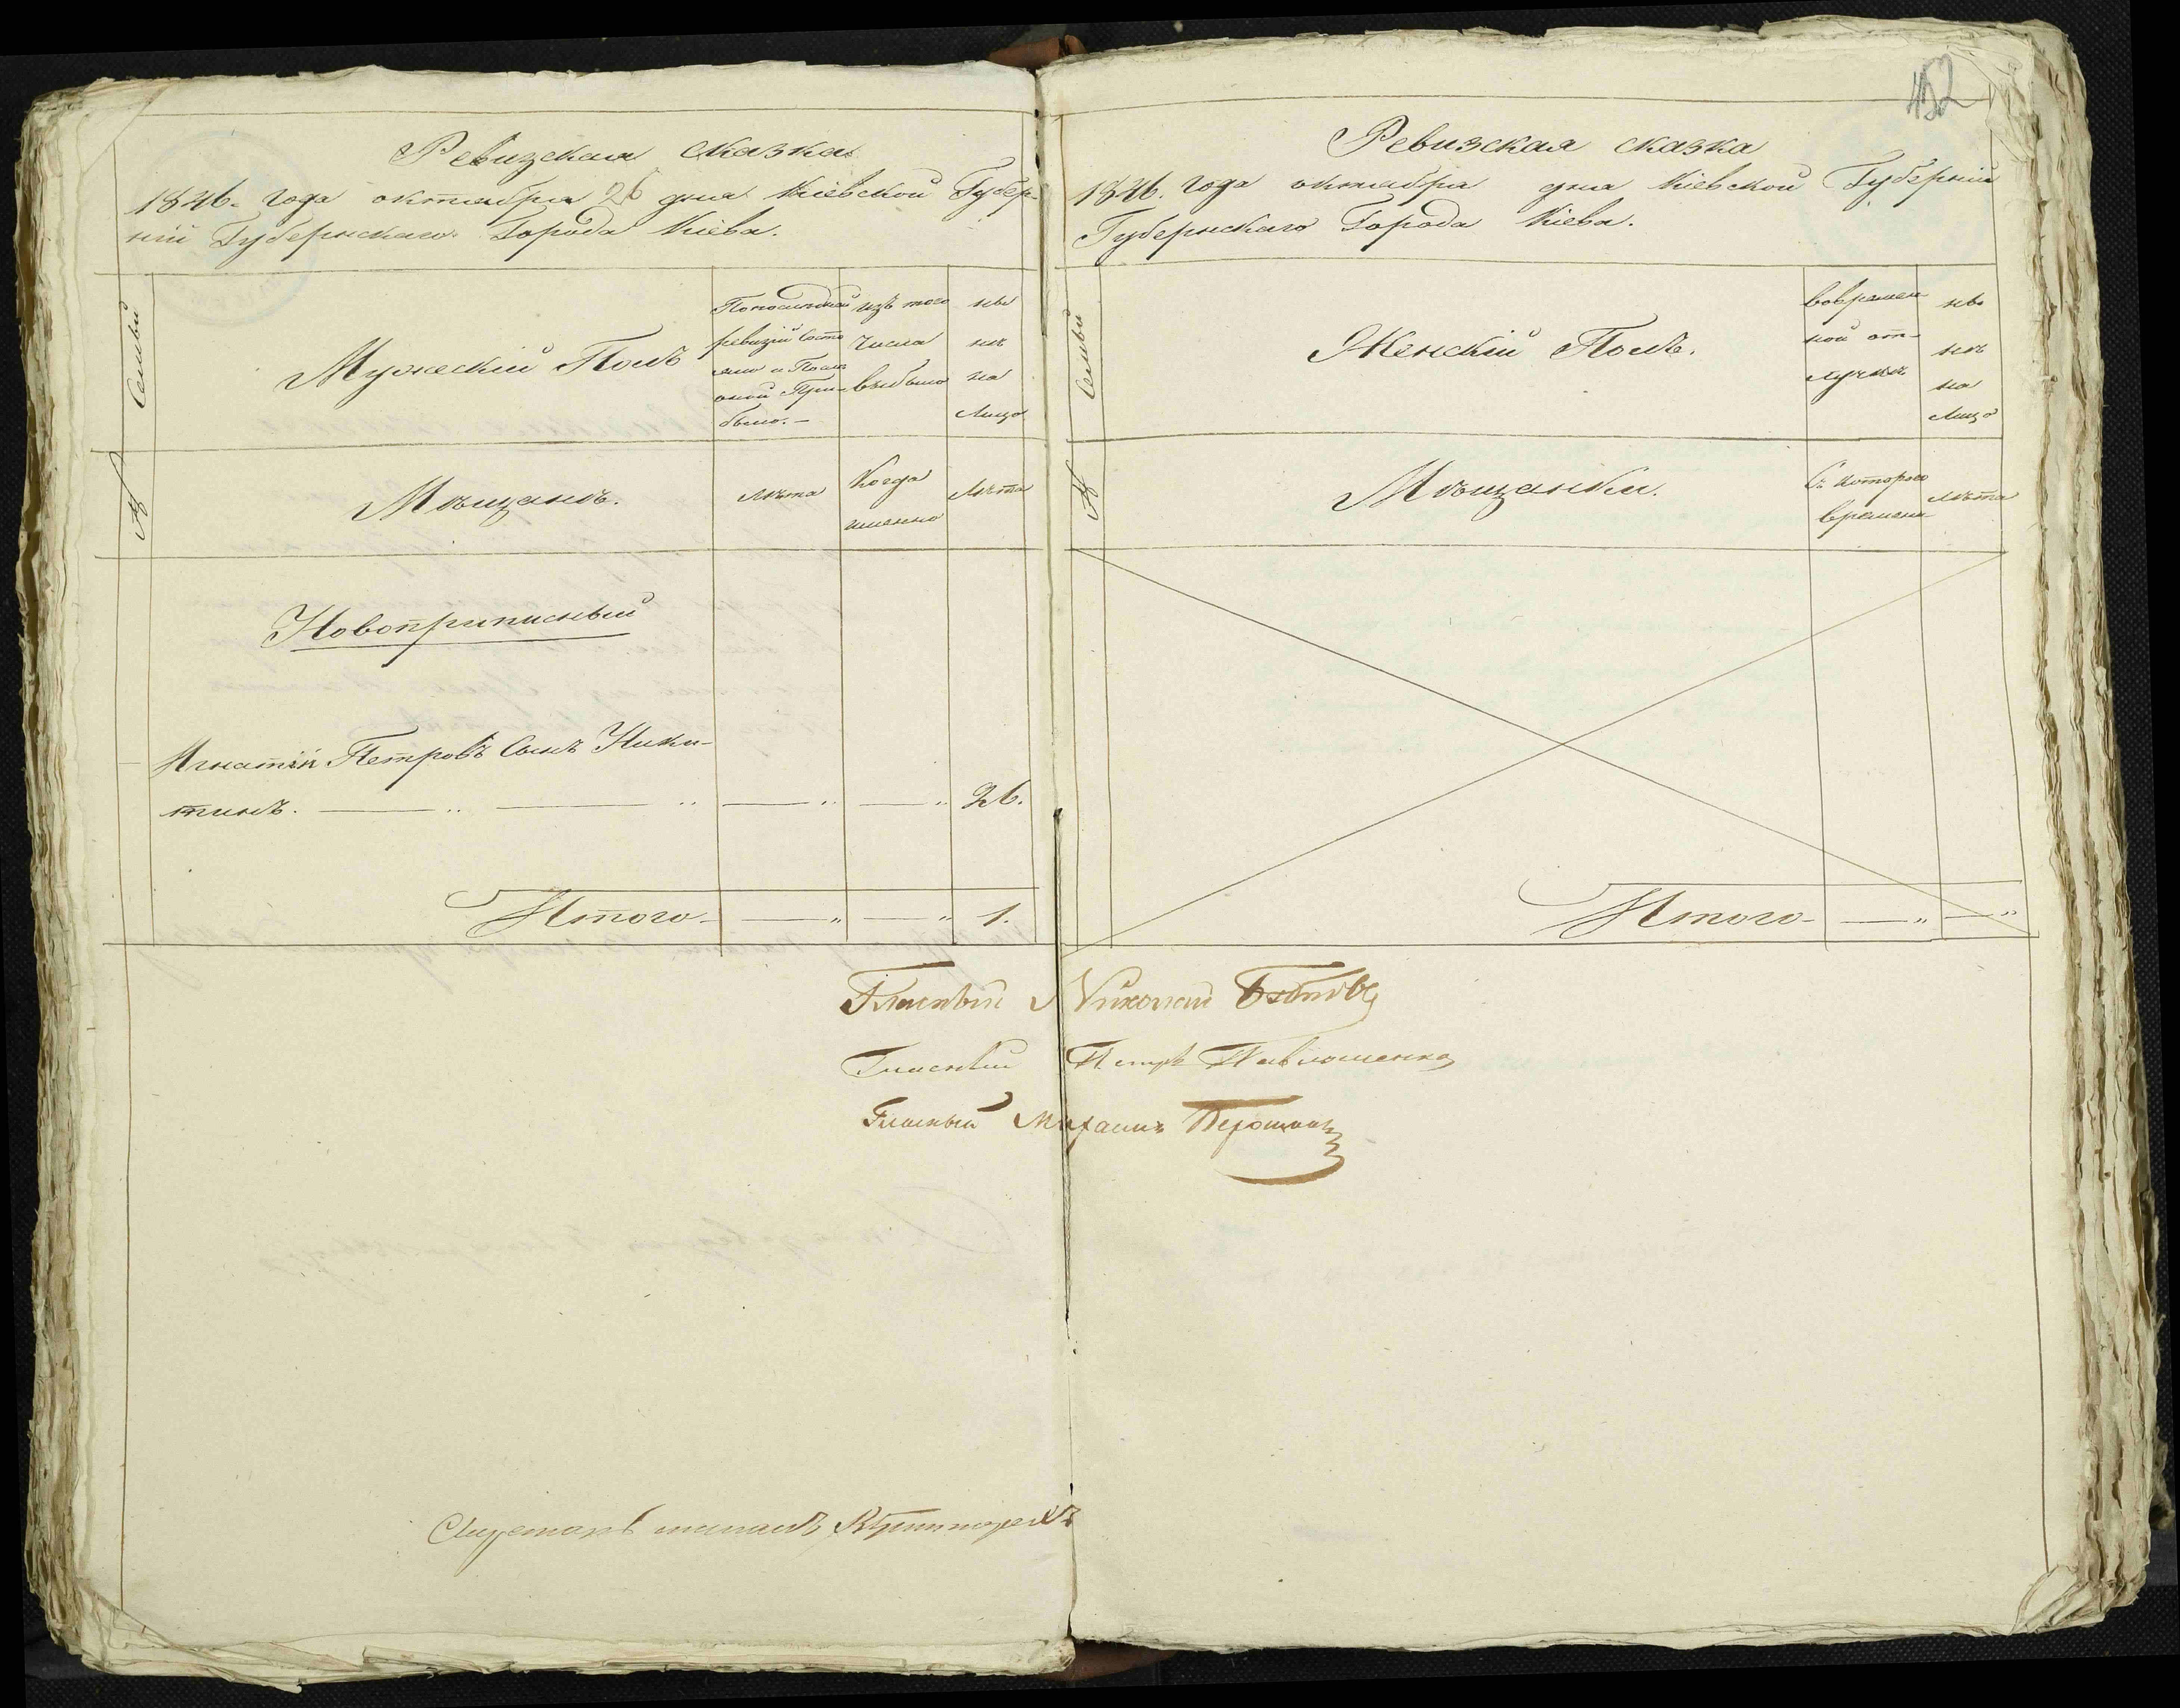 452
Ревизская сказка
1846. года октября 26 дня Кіевской Губер-
ніи Губернскаго Города Кіева.
Семьи
Мужескій Полъ
По последней
ревизіи состо
яло и После
оной При-
было. —
изъ того
числа
выбыло
ны
нѣ
на
Лицо
№
Мѣщанъ.
Лѣта
Когда
именно
Лѣта
Новоприписный
Игнатій Петровъ Сынъ Ники-
тинъ. — „ — „ — „ — „ 26.
Итого — „ — „ 1.
Ревизская сказка
1846. года октября дня Кіевской Губерніи
Губернскаго Города Кіева.
Семьи
Женскій Полъ.
во времен
ной от-
лучкѣ
ны
нѣ
на
Лицо
№
Мѣщанки.
Съ котораго
времени
Лѣта
Итого — „ — „
Гласный Николай
Гласный Петръ
Гласный Михаилъ